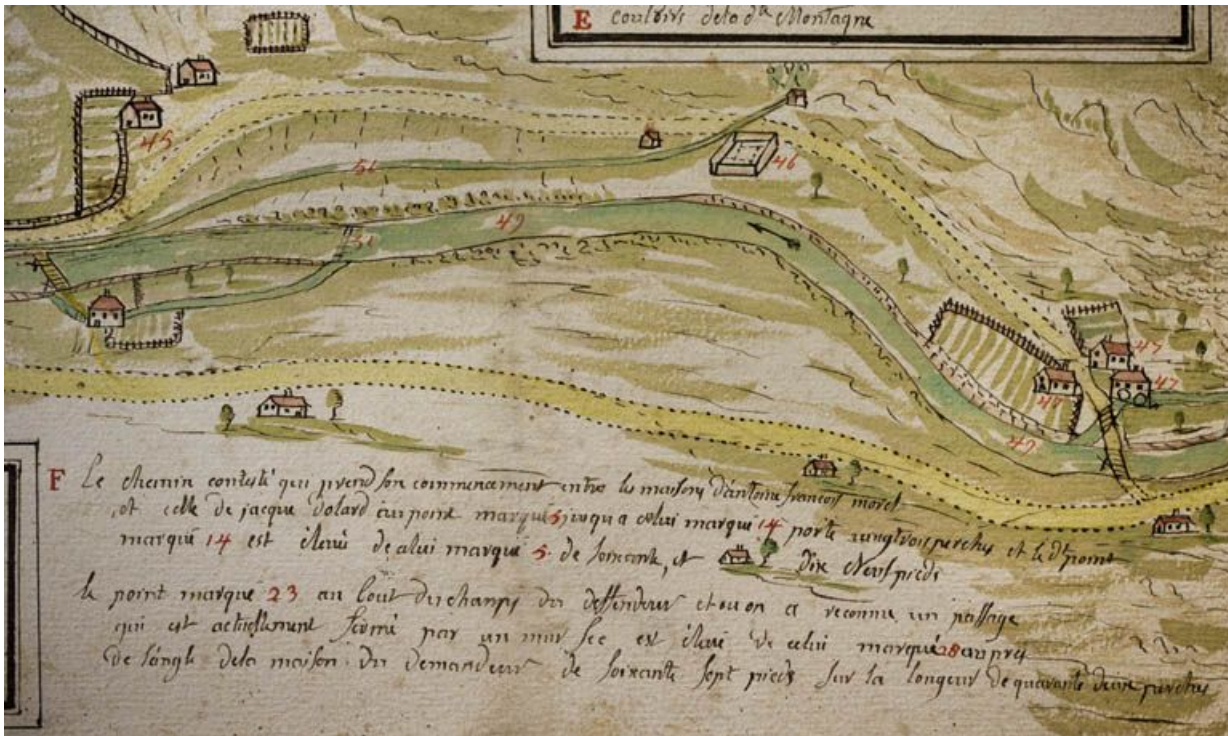 E couloirs de la dte Montagne
45
46
51
49
51
47
47
48
49
F Le chemin contesté qui prend son commencement entre les maisons d'antoine françois morel
et celle de jacque dolard au point marqué 5 jusqu a celui marqué 14 porte vingt trois perches et le dt point
marqué 14 est élevé de celui marqué 5. de soixante, et dix Neuf pieds
le point marque 23 au bout du champs du deffendeur et ou on a reconnu un passage
qui est actuellement fermé par un mur sec est élevé de celui marqué 28 au pres
de l'angle de la maison du demandeur de soixante sept pieds sur la longeur de quarante deux perches